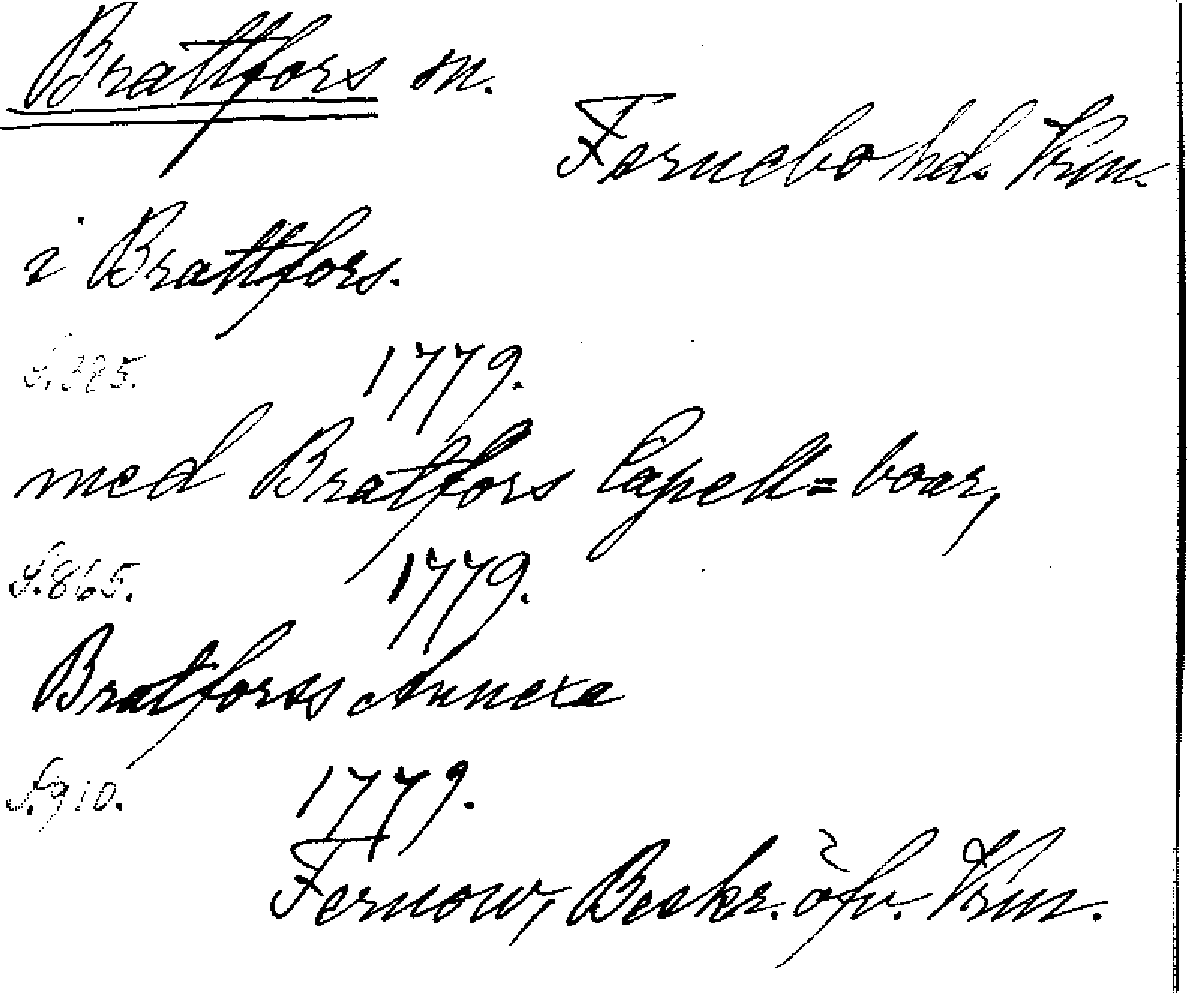 Brattfors sn.
Fernebo hd. Vrm.
i Brattfors.
S.385. 1779.
med Bratfors Capell=boar,
S.865. 1779.
Bratforss Annexa
S.910. 1779.
Fernow, Beskr. öfv. Vrm.